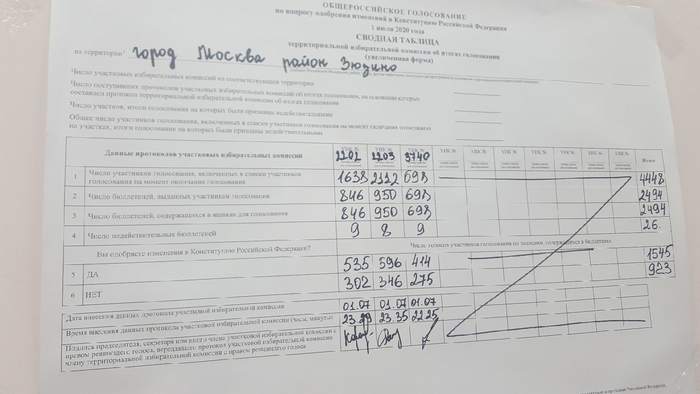 ОБЩЕРОССИЙСКОЕ ГОЛОСОВАНИЕ
по вопросу одобрения изменений в Конституцию Российской Федерации
1 июля 2020 года
СВОДНАЯ ТАБЛИЦА
территориальной избирательной комиссии об итогах голосования
(увеличенная форма)
на территории город Москва район Зюзино
Число участковых избирательных комиссий на соответствующей территории
Число поступивших протоколов участковых избирательных комиссий об итогах голосования, на основании которых
составлен протокол территориальной избирательной комиссии об итогах голосования
Число участков, итоги голосования на которых были признаны недействительными
Общее число участников голосования, включенных в списки участников голосования на момент окончания голосования
на участках, итоги голосования на которых были признаны недействительными
Данные протоколов участковых избирательных комиссий УИК № 2202 УИК № 2203 УИК № 3740 УИК № УИК № УИК № УИК № УИК № УИК № УИК № Итого
1 Число участников голосования, включенных в списки участников голосования на момент окончания голосования 1638 2112 698 4448
2 Число бюллетеней, выданных участникам голосования 846 950 698 2494
3 Число бюллетеней, содержащихся в ящиках для голосования 846 950 698 2494
4 Число недействительных бюллетеней 9 8 9 26
Вы одобряете изменения в Конституцию Российской Федерации? Число голосов участников голосования по позициям, содержащимся в бюллетене
5 ДА 535 596 414 1545
6 НЕТ 302 346 275 923
Дата внесения данных протокола участковой избирательной комиссии 01.07 01.07 01.07
Время внесения данных протокола участковой избирательной комиссии (часы, минуты) 23.35 22.25
Подпись председателя, секретаря или иного члена участковой избирательной комиссии с
правом решающего голоса, передавшего протокол участковой избирательной комиссии
члену территориальной избирательной комиссии с правом решающего голоса